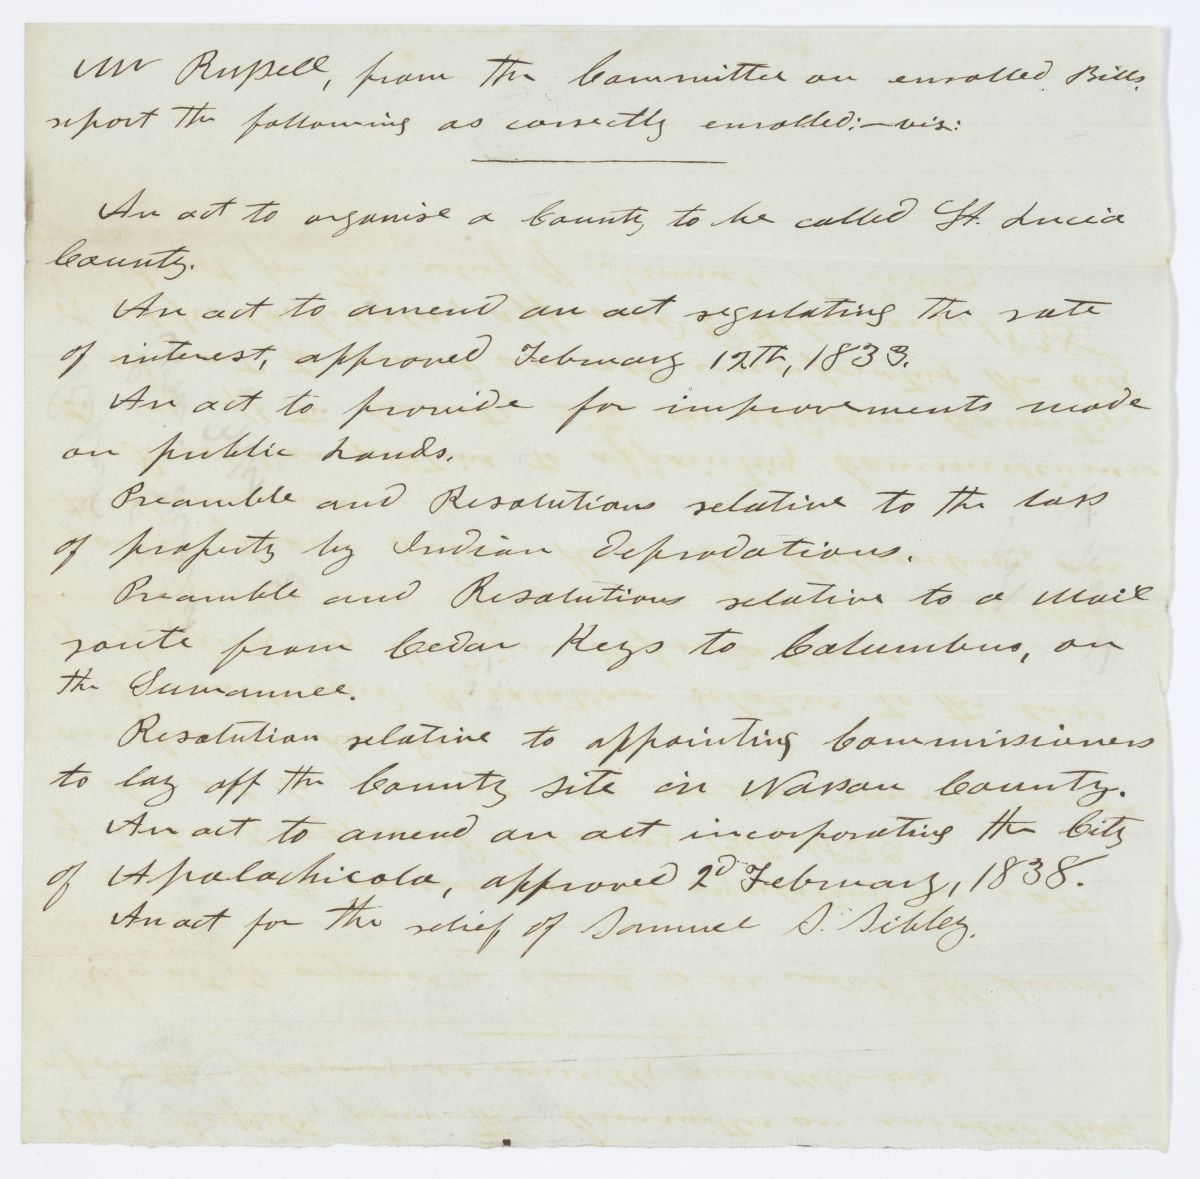 Mr Russell, from the Committee on enrolled Bills,
report the following as correctly enrolled:—vis:
An act to organise a County to be called St. Lucia
County.
An act to amend an act regulating the rate
of interest, approved February 12th, 1833.
An act to provide for improvements made
on public lands.
Preamble and Resolutions relative to the loss
of property by Indian depradations.
Preamble and Resolutions relative to a Mail
route from Cedar Keys to Columbus, on
the Suwannee.
Resolution relative to appointing Commissioners
to lay off the County site in Nassau County.
An act to amend an act incorporating the City
of Apalachicola, approved 2d February, 1838.
An act for the relief of Samuel S. Sibley.